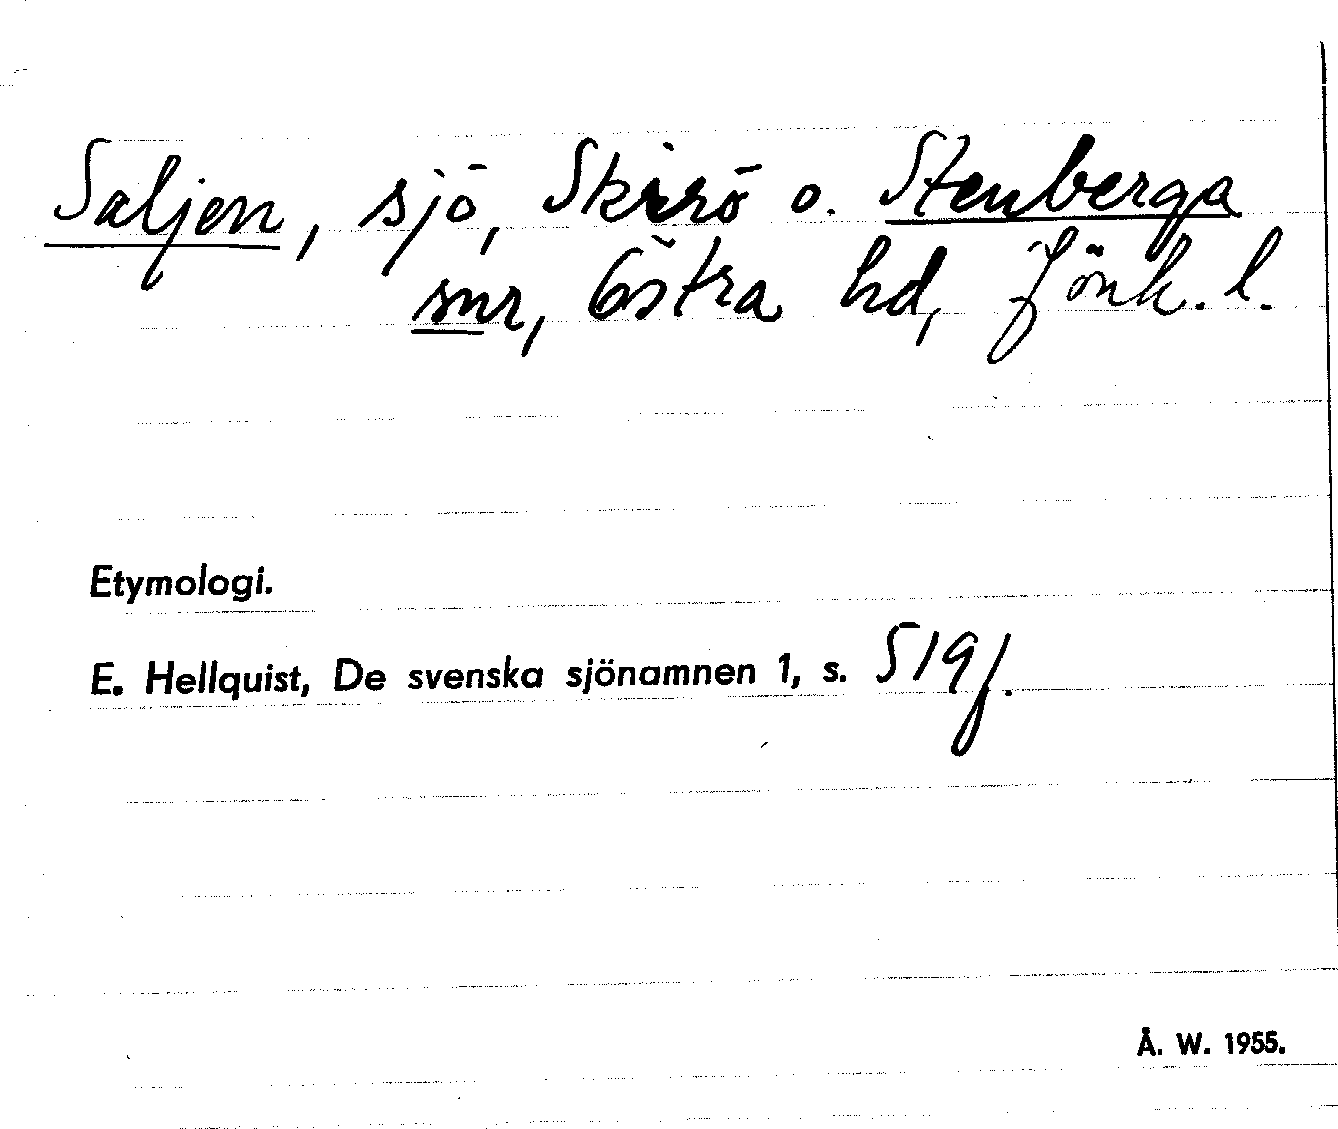 Saljen, sjö, Skirö o. Stenberga
snr, Östra hd, Jönk. l.
Etymologi.
E. Hellquist, De svenska sjönamnen 1, s. 519 f.
Å. W. 1955.